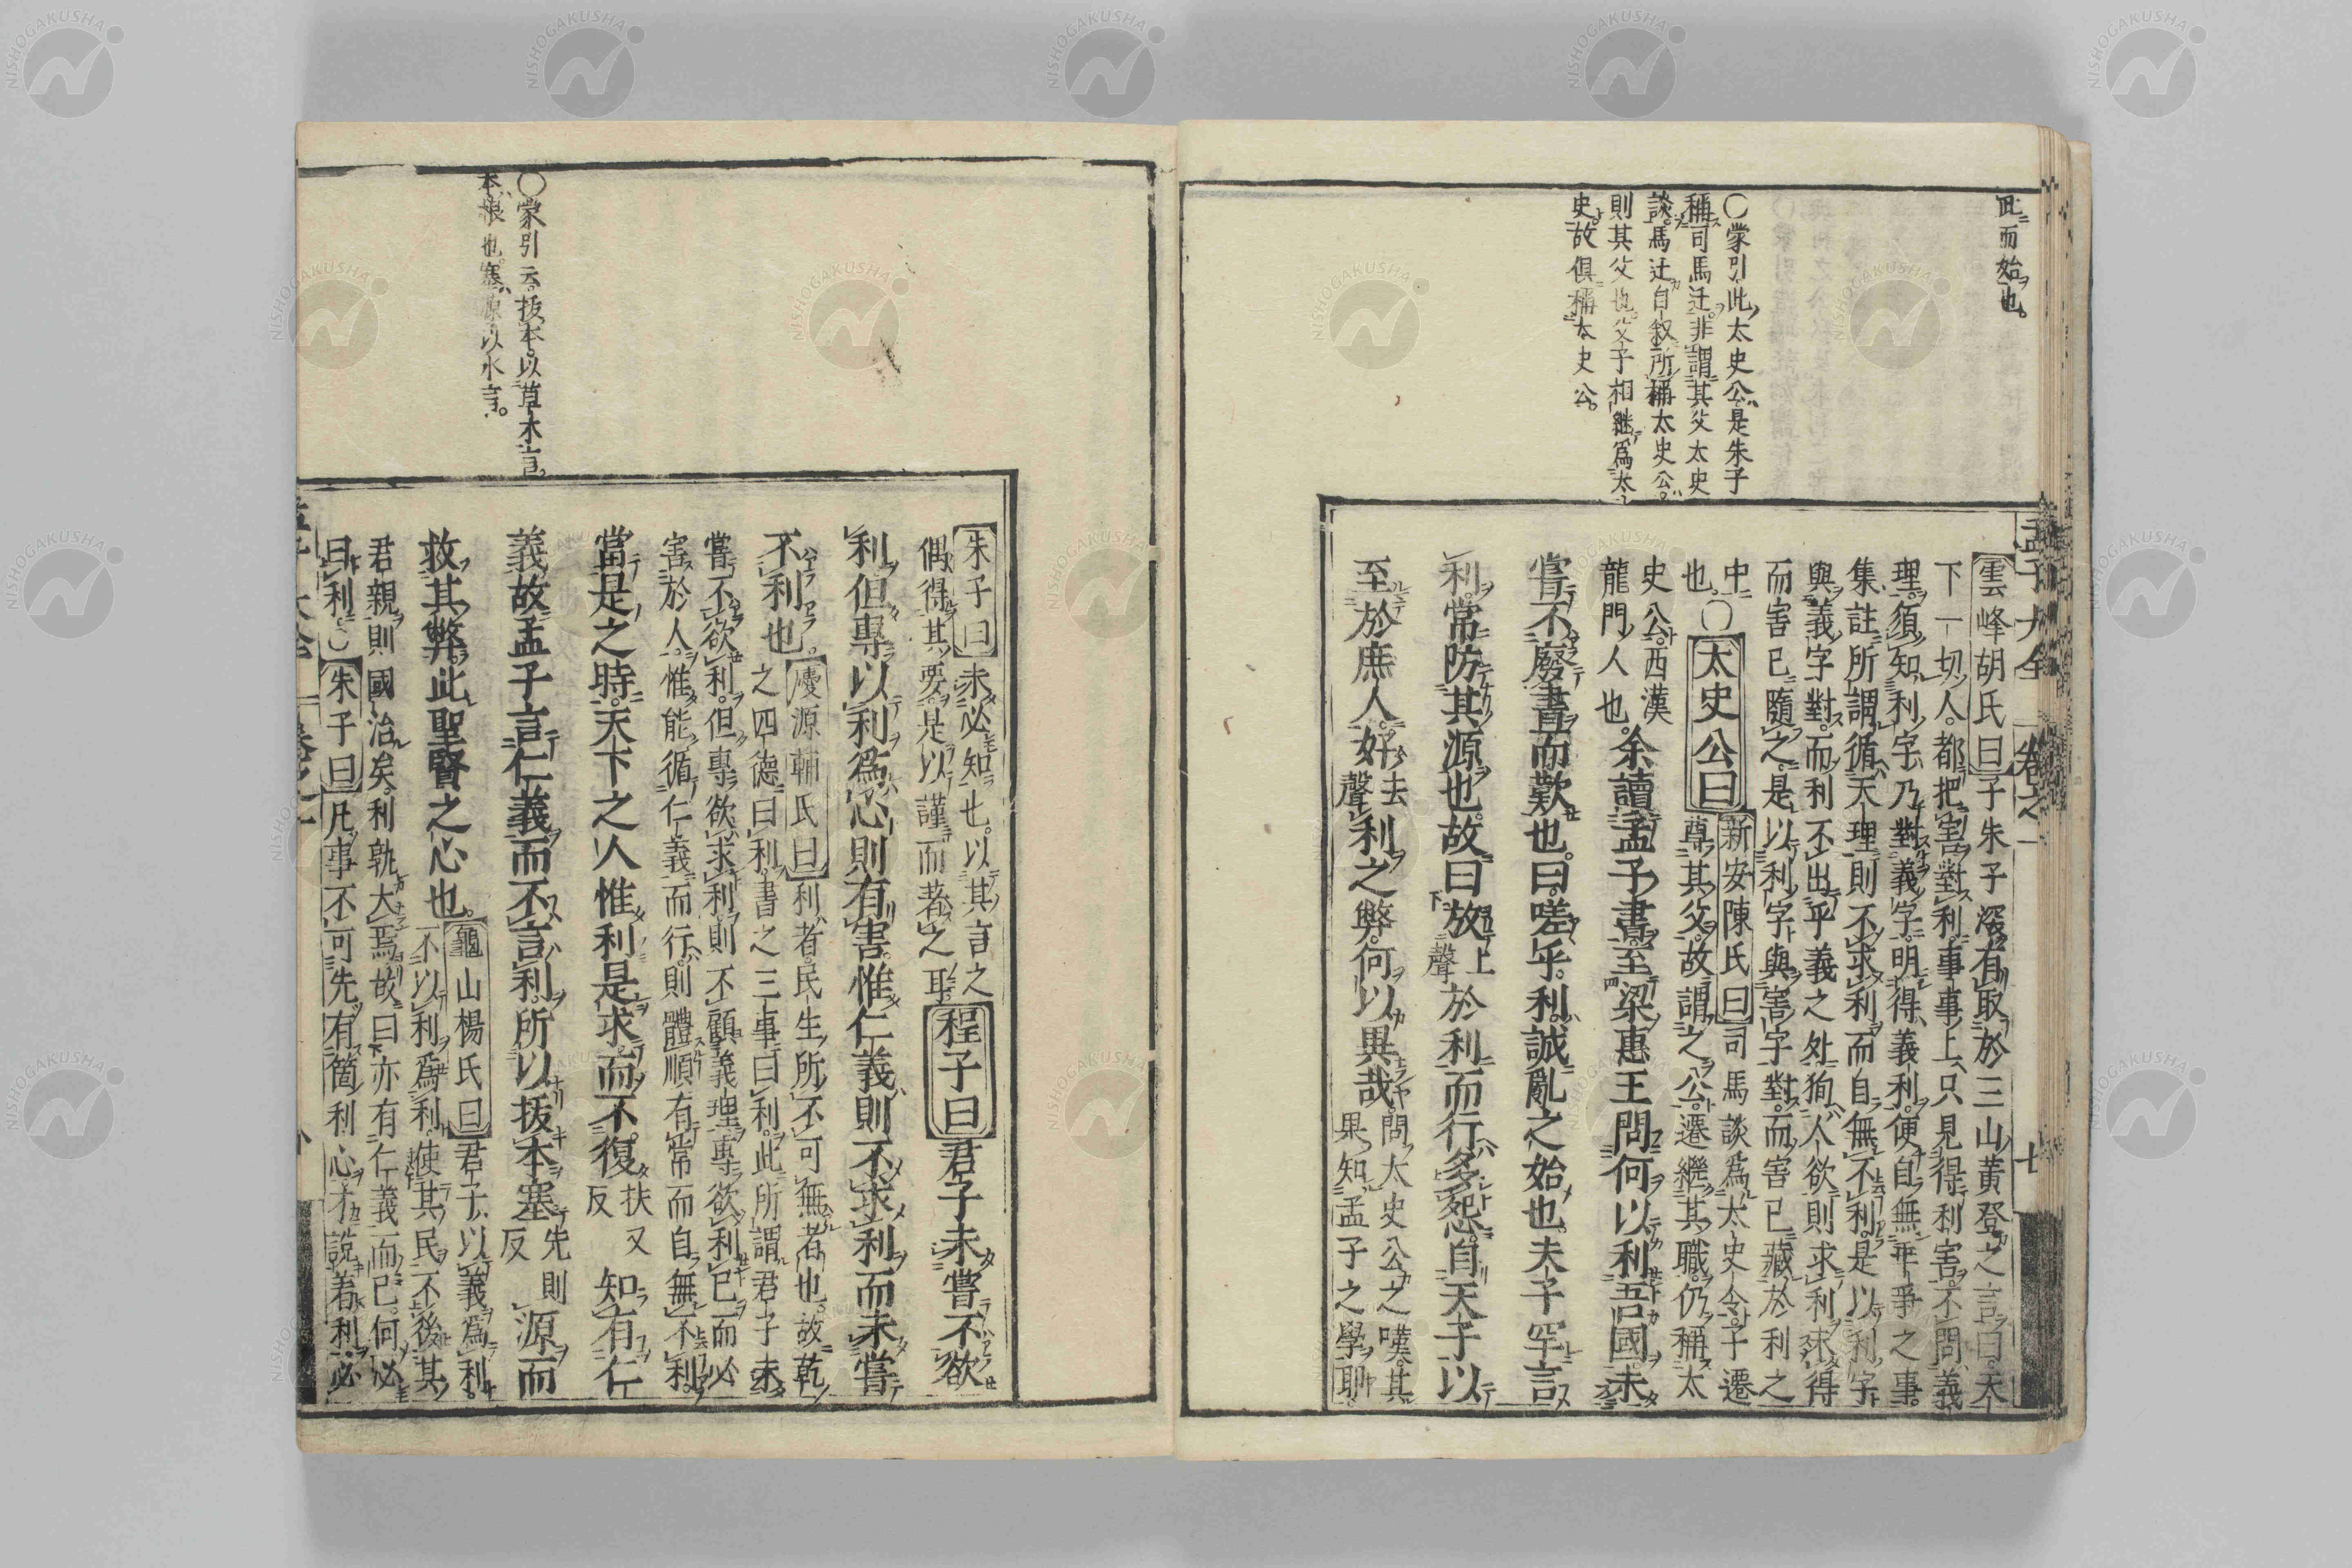 此而始也。
〇蒙引此太史公是朱子
稱司馬迁非謂其父太史
談馬迁自叙所稱太史公。
則其父也父子相継爲太
史故俱稱太史公。
孟子大全 卷之一 七
雲峰胡氏曰子朱子深有取於三山黃登之言曰天
下一切人都把害對利事事上只見得利害不問義
理須知利字乃對義字明得義利便自無乖爭之事。
集註所謂循天理則不求利而自無不利是以利字
與義字對而利不出乎義之処狥人欲則求利未得
而害已隨之是以利字與害字對而害已藏於利之
中也。〇太史公曰新安陳氏曰司馬談爲太史令子遷
尊其父故謂之公遷繼其職仍稱太
史公西漢
龍門人也。余讀孟子書至梁惠王問何以利吾國未
嘗不廢書而歎也。曰嗟乎。利誠亂之始也。夫子罕言
利。常防其源也。故曰放上聲於利而行多怨。自天子以
至於庶人。好去聲利之弊何以異哉。問太史公之嘆其
果知孟子之學耶
朱子曰未必知也。以其言之
偶得其要是以謹而著之耳程子曰君子未嘗不欲
利但專以利爲心則有害。惟仁義則不求利而未嘗
不利也。慶源輔氏曰利者民生所不可無者也。故乾
之四德曰利書之三事曰利。此所謂君子未
嘗不欲利。但專欲求利則不顧義理專欲利已而必
害於人。惟能循仁義而行。則體順有常而自無不利。
當是之時。天下之人惟利是求。而不復扶又反知有仁
義故孟子言仁義而不言利。所以拔本塞先則反源而
救其弊。此聖賢之心也。龜山楊氏曰君子以義爲利
不以利爲利使其民不後其
君親則國治矣。利孰大焉故曰亦有仁義而已。何必
曰利。〇朱子曰凡事不可先有箇利心才說着利必
〇蒙引云。拔本。以草木言。
本根也塞源以水言。